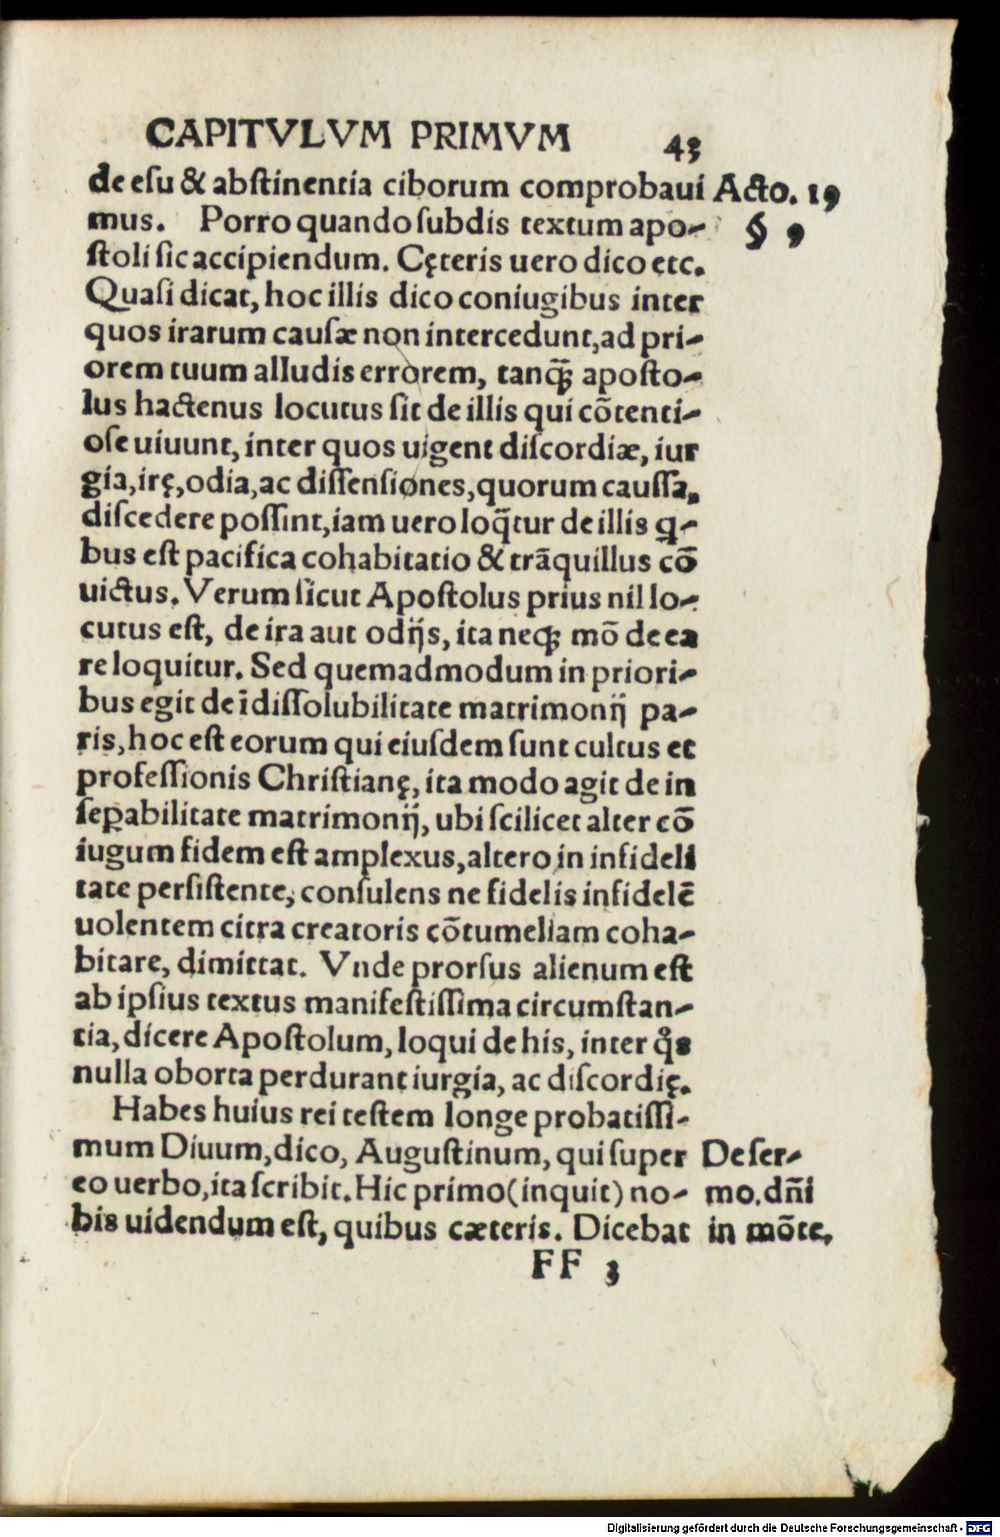 CAPITVLVM PRIMVM 43
de esu & abstinentia ciborum comprobaui Acto. 19
mus. Porro quando subdis textum apo- § 9
stoli sic accipiendum. Cęteris uero dico etc.
Quasi dicat, hoc illis dico coniugibus inter
quos irarum causæ non intercedunt, ad pri-
orem tuum alludis errorem, tanq̃ꝫ aposto-
lus hactenus locutus sit de illis qui cõtenti-
ose uiuunt, inter quos uigent discordiæ, iur
gia, irę, odia, ac dissensiones, quorum caussa,
discedere possint, iam uero loq̃tur de illis q-
bus est pacifica cohabitatio & trãquillus cõ
uictus. Verum sicut Apostolus prius nil lo-
cutus est, de ira aut odijs, ita neqꝫ mõ de ea
re loquitur. Sed quemadmodum in priori-
bus egit de ĩdissolubilitate matrimonij pa-
ris, hoc est eorum qui eiusdem sunt cultus et
professionis Christianę, ita modo agit de in
seꝑabilitate matrimonij, ubi scilicet alter cõ
iugum fidem est amplexus, altero in infideli
tate persistente, consulens ne fidelis infidelẽ
uolentem citra creatoris cõtumeliam coha-
bitare, dimittat. Vnde prorsus alienum est
ab ipsius textus manifestissima circumstan-
tia, dicere Apostolum, loqui de his, inter q̊s
nulla oborta perdurant iurgia, ac discordię.
Habes huius rei testem longe probatissi-
mum Diuum, dico, Augustinum, qui super De ser-
eo uerbo, ita scribit. Hic primo (inquit) no- mo. dñi
bis uidendum est, quibus cæteris. Dicebat in mõte.
FF 3
Digitalisierung gefördert durch die Deutsche Forschungsgemeinschaft - DFG